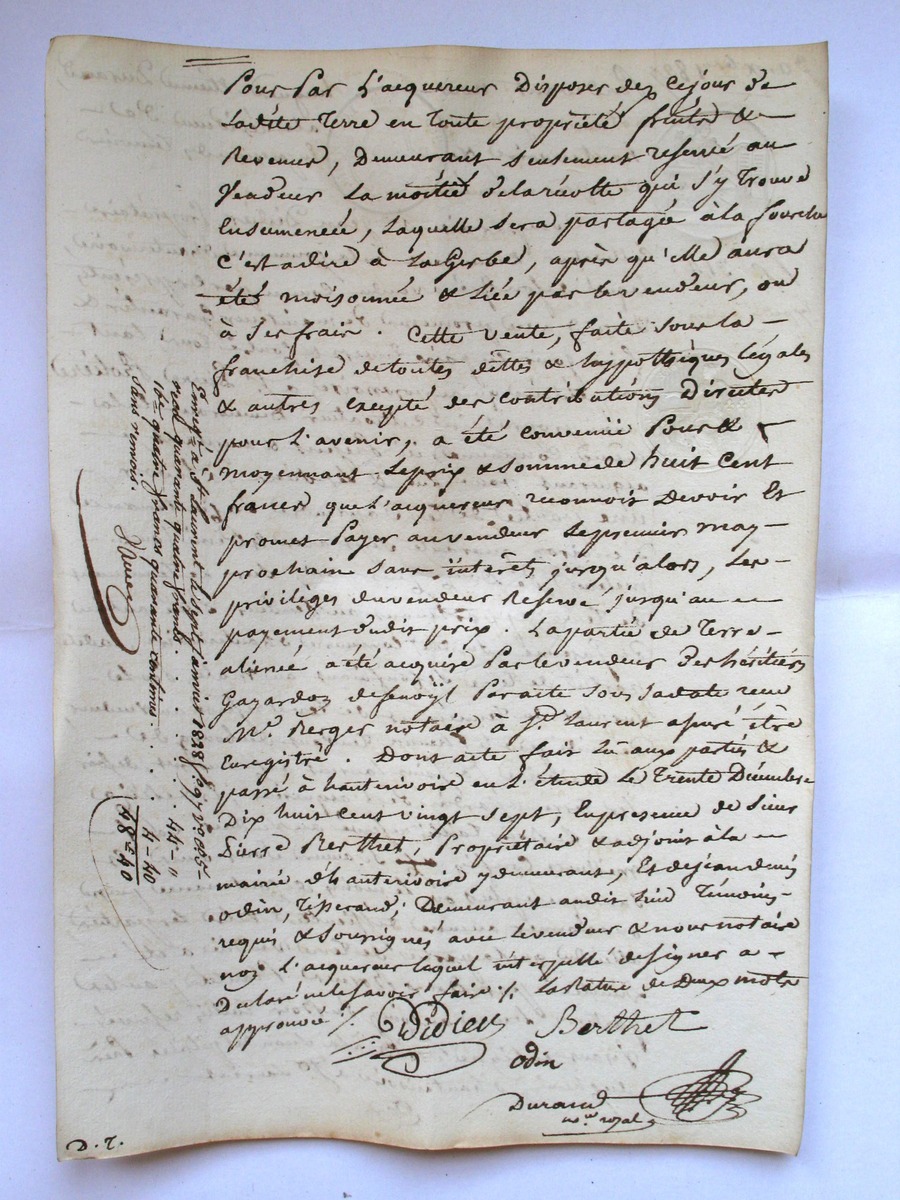 Pour Par L'acquereur Disposer dez Cejour de
Ladite Terre en Toute propriété fruits &
Revenus, Demeurant seulement reservé au
Vendeur La moitié delarécolte qui s'y Trouve
Ensemencée, Laquelle sera partagée à la fourche
C'est adire à La Gerbe, après qu'elle aura
été moisonnée & liée par le vendeur, ou
à ses frais. Cette vente, faite sous la
franchise detoutes dettes & hyppothèques légales
& autres excepté des contributions Directes
pour L'avenir, a été convenue Pour &
moyennant Leprix & somme de huit Cent
francs que L'acquereur reconnoit Devoir Et
promet Payer au vendeur Lepremier may
prochain sans interêts jusqu'alors, Les
privilèges du vendeur Reservé jusqu'au
payement dudit prix. La partie de Terre
alienée a été acquise Par le vendeur Des héritiers
Gayardon Par acte sous sa date reçu
Me. Berger notaire à St. Laurent assuré être
Enregistré. Dont acte fait Lu aux parties &
passé à hauterivoire en L'étude Le Trente Décembre
Dix huit Cent vingt sept, En presence de Sieur
Pierre Berthet, Propriétaire & adjoint à la
mairie d'hauterivoire y demeurant, Et de jean denis
odin, Tisserand, Demeurant audit Lieu Témoins
requis & Soussignés avec Levendeur & nous notaire
non L'acquereur lequel interpellé de signer a
Déclaré nele savoir faire ./. La Rature de Deux mots
approuvée ./. Didier Berthet
odin
Durand
Nre royal
D. T.
Enregé. à St. Laurent le sept janvier 1828, f° 97 V°
reçu quarante quatre francs . . . 44 - "
10e quatre francs quarante centimes . . . 4 - 40
Sans renvois. 48 = 40